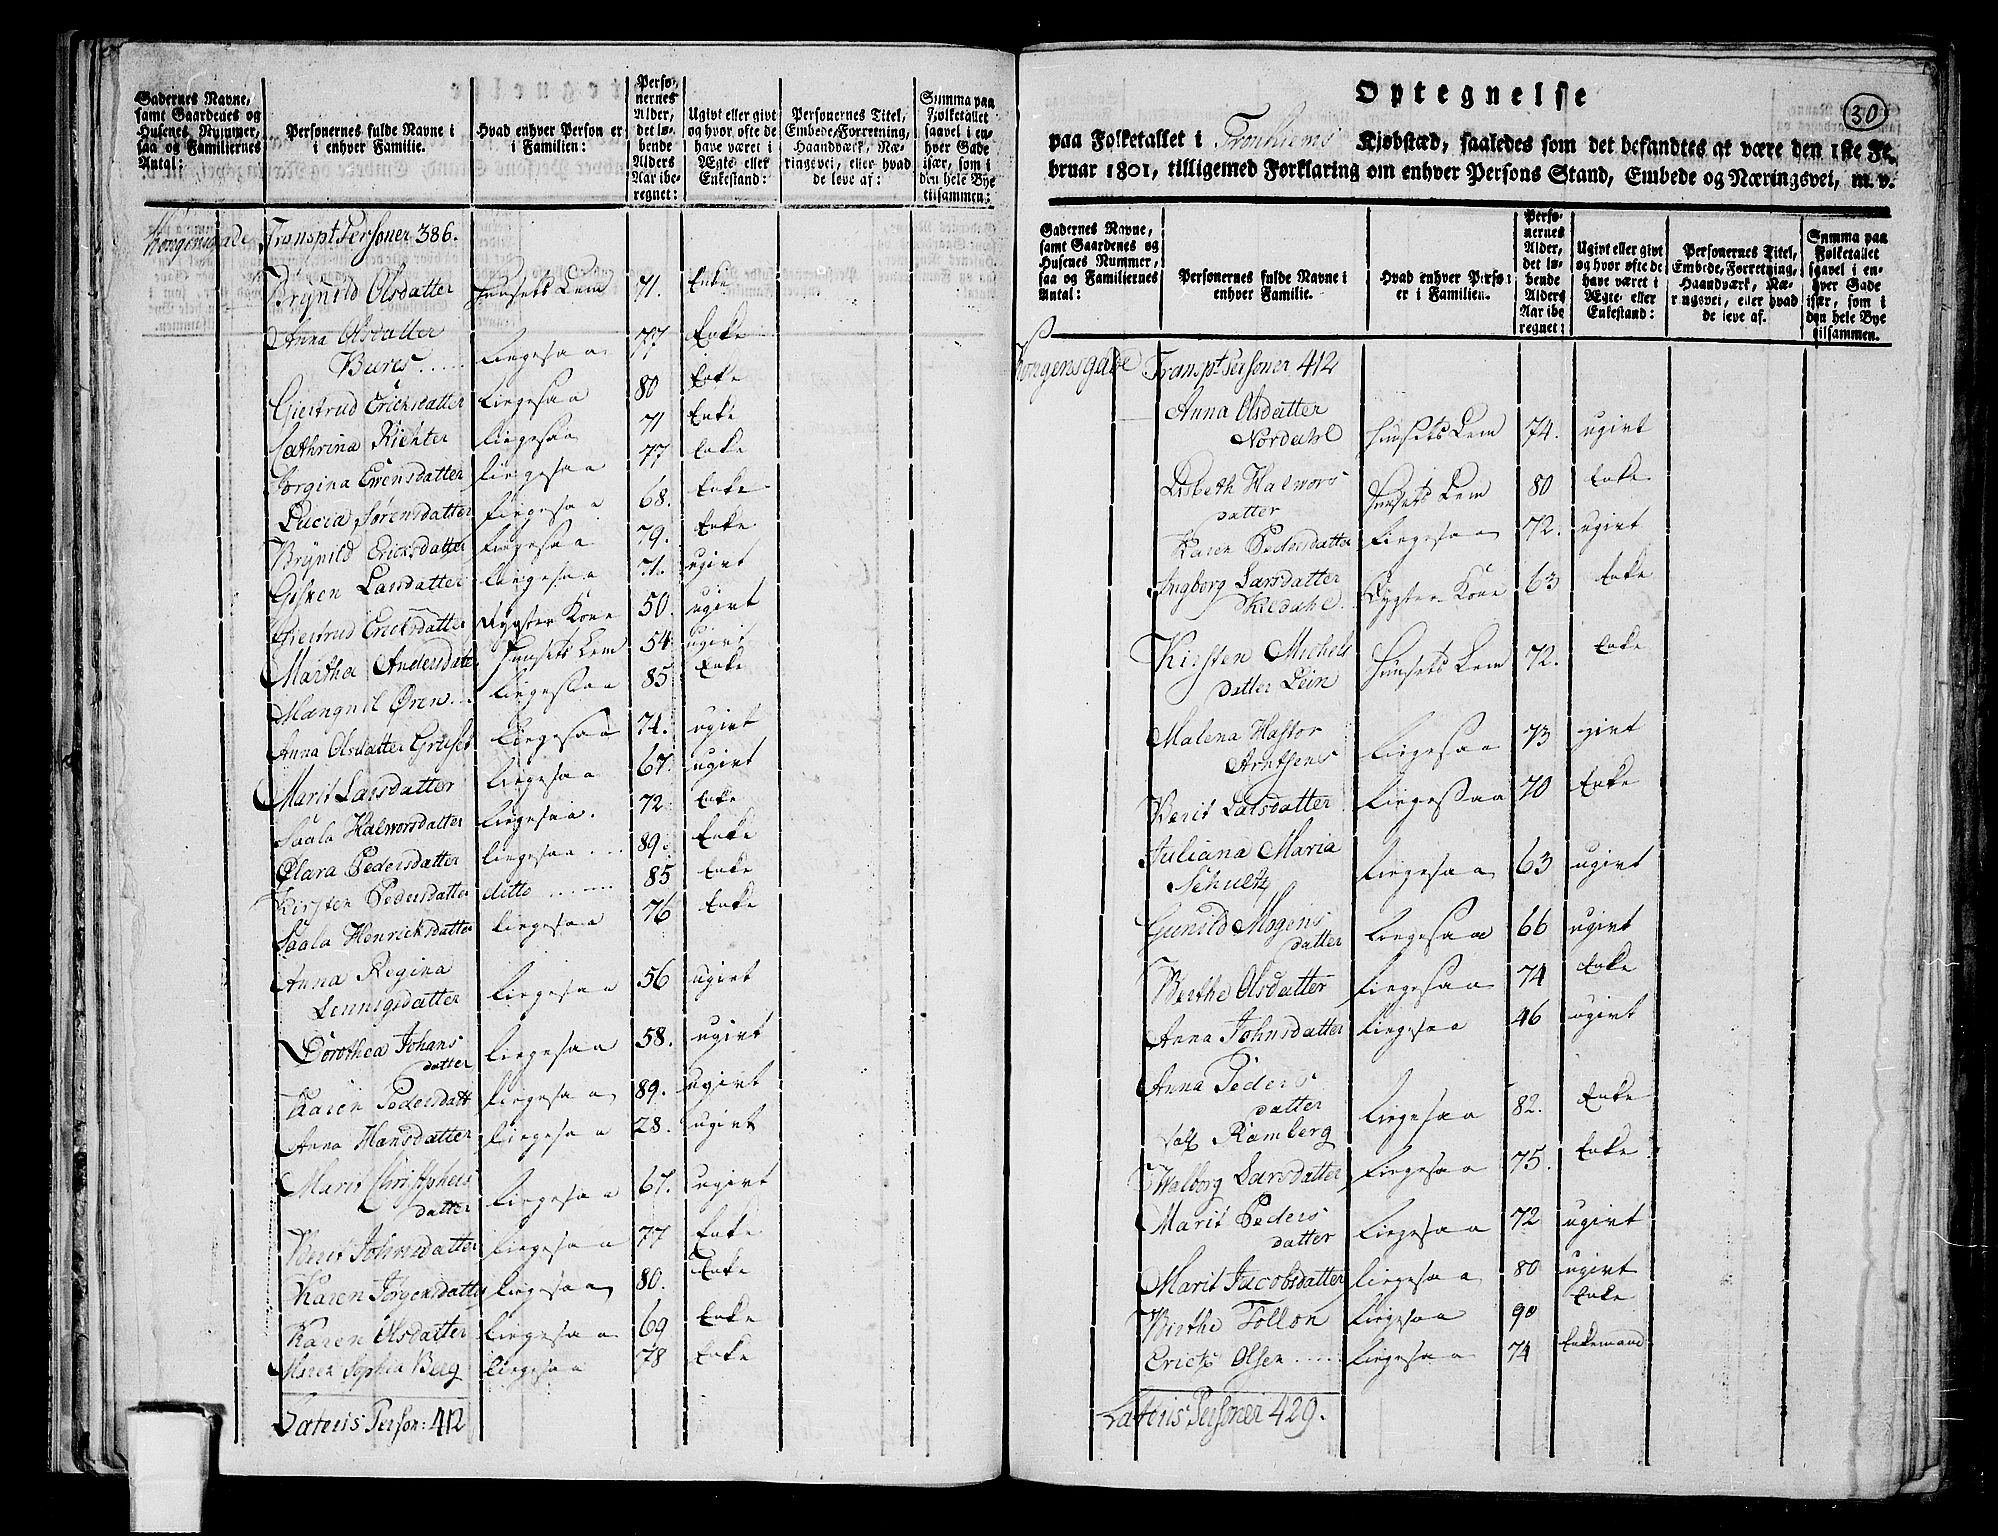 Gadernes Navne,
samt Gaardenes og
Husenes Nummer,
saa og Familiernes
Antal:
Personernes fulde Navne i
enhver Familie.
Hvad enhver Person er
i Familien:
Persø-
nernes
Alder,
det lø-
bende
Alders
Aar ibe-
regnet:
Ugivt eller givt
og hvor ofte de
have været i
Ægte- eller
Enkestand:
Personernes Titel,
Embede, Forretning,
Haandværk, Næ-
ringsvei, eller hvad
de leve af:
Summa paa
Folketallet
saavel i en-
hver Gade
især, som i
den hele Bye
tilsammen:
Kongensgade Transpt Personer 386.
Brynild Olsdatter Huusets Lem 71. Enke
Anna Olsdatter
Bures..... Ligesaa 77 Enke
Giertrud Ericksdatter Ligesaa 80 Enke
Cathrina Richter Ligesaa 71 Enke
Jorgina Evensdatter Ligesaa 77 Enke
Lucia Sørensdatter Ligesaa 68. Enke
Brynild Ericksdatter Ligesaa 79. Enke
Gisken Larsdatter Ligesaa 71. ugivt
Giertrud Ericksdatter Røgter Kone 50. ugivt
Martha Andersdatt Huusets Lem 54 ugivt
Mængnil Ören... Ligesaa 85 Enke
Anna Olsdatter Ligesaa 74. ugivt
Marit Larsdatter Ligesaa 67. ugivt
Saala Halworsdatter Ligesaa. 72. Enke
Clara Pedersdatter Ligesaa .... 89. Enke
Kirsten Pedersdatter ditto ........ 85 Enke
Saala Henricksdatter Ligesaa 76 Enke
Anna Regina
Lennsgsdatter Ligesaa 56 ugivt
Dorothea Johans
datter Ligesaa 58. ugivt
Karen Pedersdatt Ligesaa 89. ugivt
Anna Hansdatter Ligesaa 28. ugivt
Marit Christophers
datter Ligesaa 67. ugivt
Berit Johnsdatter Ligesaa 77 Enke
Karen Jörgensdatter Ligesaa 80. Enke
Karen Olsdatter Ligesaa 69 Enke
Maren Sophia Berg Ligesaa 78 Enke
Lateris Person: 412
30
Optegnelse
paa Folketallet i Tronhiems Kjøbstæd, saaledes som det befandtes at være den 1ste Fe-
bruar 1801, tilligemed Forklaring om enhver Persons Stand, Embede og Næringsvei, m. v.
Gadernes Navne,
samt Gaardenes og
Husenes Nummer,
saa og Familiernes
Antal:
Personernes fulde Navne i
enhver Familie.
Hvad enhver Perso-
er i Familien.
Persø-
nernes
Alder,
det lø-
bende
Alders
Aar ibe-
regnet:
Ugivt eller givt
og hvor ofte de
have været i
Ægte- eller
Enkestand:
Personernes Titel,
Embede, Forretning,
Haandværk, Næ-
ringsvei, eller hvad
de leve af.
Summa paa
Folketallet
saavel i en-
hver Gade
især, som i
den hele Bye
tilsammen.
Kongensgade Transpt Personer 412
Anna Olsdatter
Nordahl Huusets Lem 74. ugivt
Lisbeth Halwors
datter Huusets Lem 80 Enke
Karen Pedersdatter Ligesaa 72. ugivt
Ingborg Larsdatter
Skiedahl.. Røgter Kone 63 Enke
Kirsten Michels
datter Lein Huusets Lem 72. Enke
Malena Hastor
Arntsens Ligesaa 73 givt
Berit Larsdatter Ligesaa 70 Enke
Juliana Maria
Schultz Ligesaa 63 ugivt
Gunild Mogens
datter Ligesaa 66 ugivt
Berthe Olsdatter Ligesaa 74 Enke
Anna Johnsdatter Ligesaa 46 ugivt
Anna Peders
datter
sal Ramberg Ligesaa 82. Enke
Walborg Larsdatter Ligesaa 75. Enke
Marit Peders
datter Ligesaa 72 ugivt
Marit Jacobsdatter Ligesaa 80 ugivt
Berthe Follon Ligesaa 90 Enke
Erick Olsen ..... Ligesaa 74 Enkemand
Lateris Personer 429.